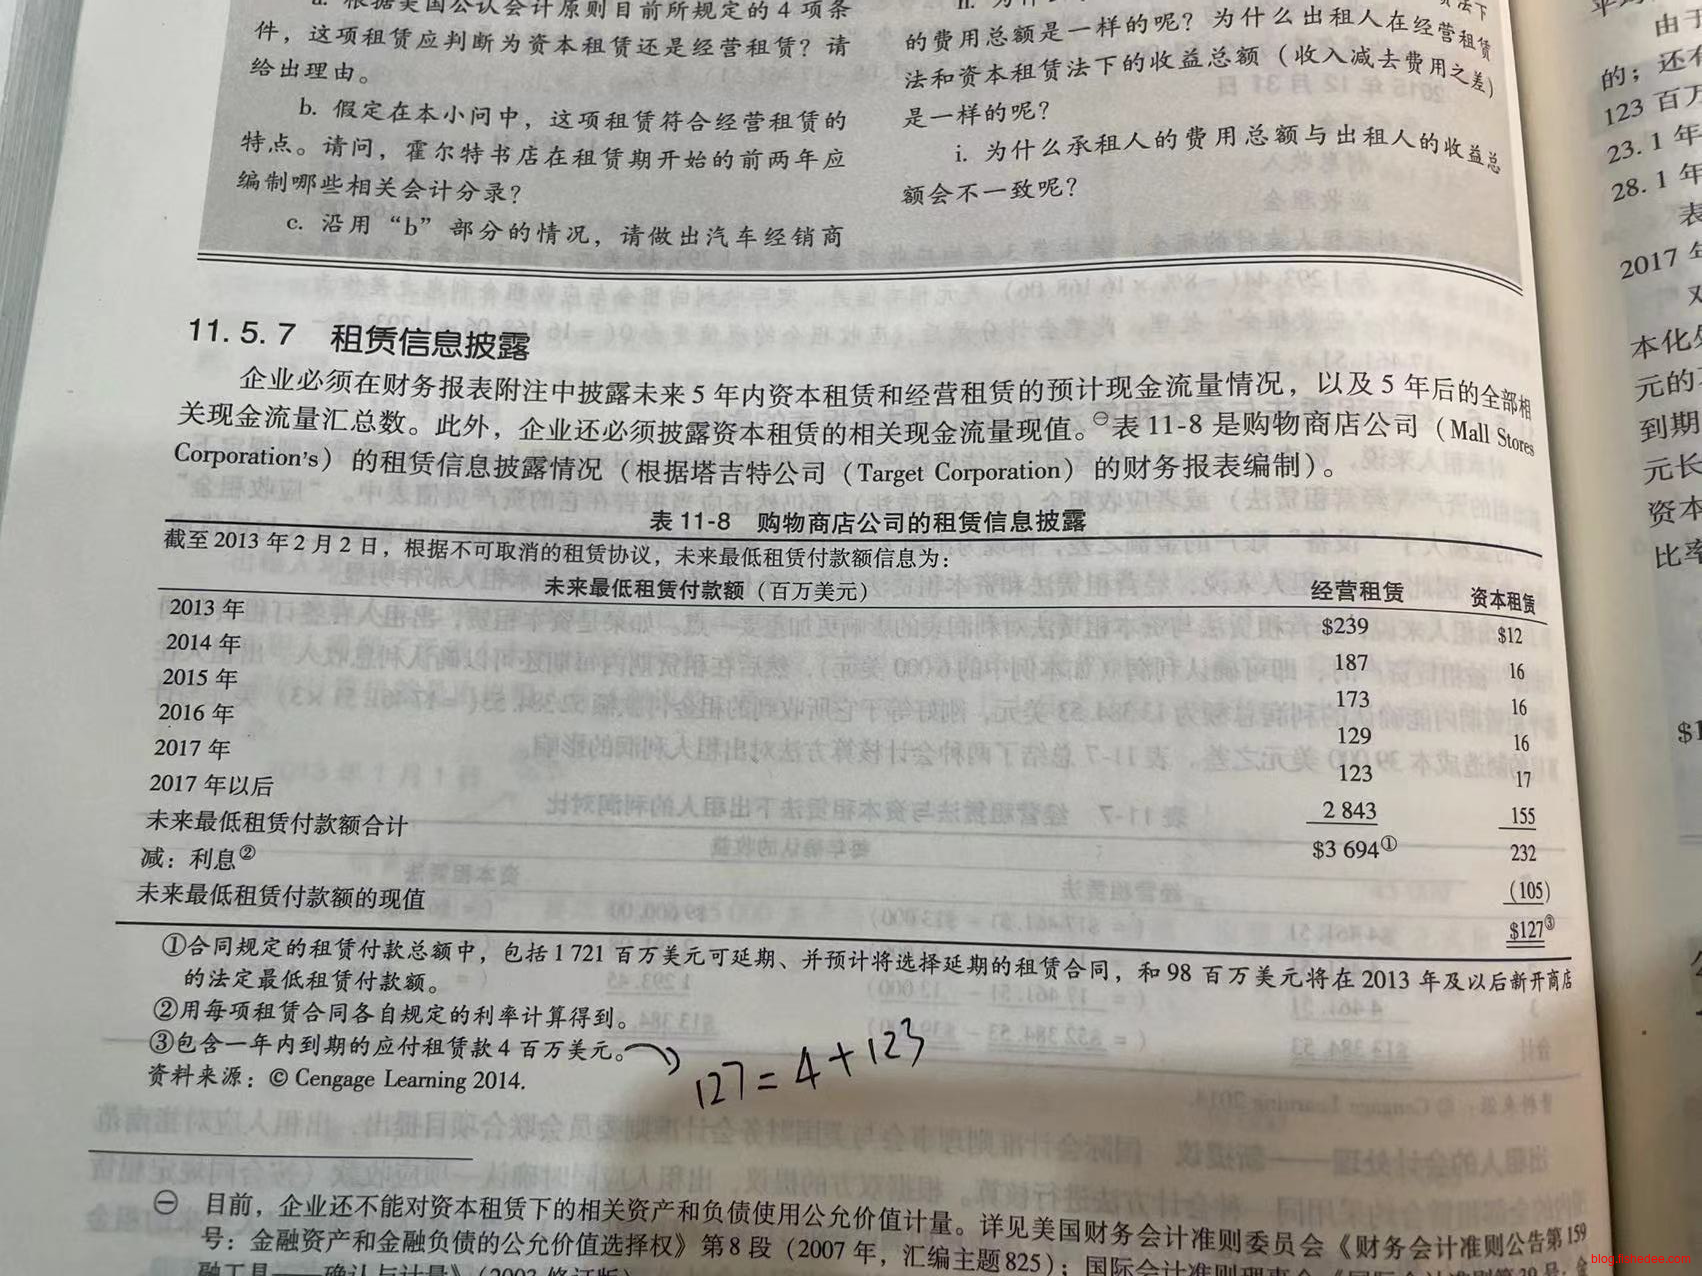 a. 根据美国公认会计原则目前所规定的4项条
件，这项租赁应判断为资本租赁还是经营租赁？请
给出理由。
b. 假定在本小问中，这项租赁符合经营租赁的
特点。请问，霍尔特书店在租赁期开始的前两年应
编制哪些相关会计分录？
c. 沿用“b”部分的情况，请做出汽车经销商
的费用总额是一样的呢？为什么出租人在经营租赁
法和资本租赁法下的收益总额（收入减去费用之差）
是一样的呢？
i. 为什么承租人的费用总额与出租人的收益总
额会不一致呢？
11.5.7 租赁信息披露
企业必须在财务报表附注中披露未来5年内资本租赁和经营租赁的预计现金流量情况，以及5年后的全部相
关现金流量汇总数。此外，企业还必须披露资本租赁的相关现金流量现值。㊀表11-8是购物商店公司（Mall Stores
Corporation's）的租赁信息披露情况（根据塔吉特公司（Target Corporation）的财务报表编制）。
表11-8 购物商店公司的租赁信息披露
截至2013年2月2日，根据不可取消的租赁协议，未来最低租赁付款额信息为：
未来最低租赁付款额（百万美元） 经营租赁 资本租赁
2013年 $239 $12
2014年 187 16
2015年 173 16
2016年 129 16
2017年 123 17
2017年以后 2 843 155
未来最低租赁付款额合计 $3 694① 232
减：利息② (105)
未来最低租赁付款额的现值 $127③
①合同规定的租赁付款总额中，包括1 721百万美元可延期、并预计将选择延期的租赁合同，和98百万美元将在2013年及以后新开商店
的法定最低租赁付款额。
②用每项租赁合同各自规定的利率计算得到。
③包含一年内到期的应付租赁款4百万美元。
127=4+123
资料来源：© Cengage Learning 2014.
㊀ 目前，企业还不能对资本租赁下的相关资产和负债使用公允价值计量。详见美国财务会计准则委员会《财务会计准则公告第159
号：金融资产和金融负债的公允价值选择权》第8段（2007年，汇编主题825）；国际会计准则理事会《国际会计准则第39号：金
融工具——确认与计量》（2003修订版）
由于
的；还有
123百万
23.1年
28.1年
表
2017年
对
本化处
元的
到期
元长
资本
比率
$1
blog.fishedee.com